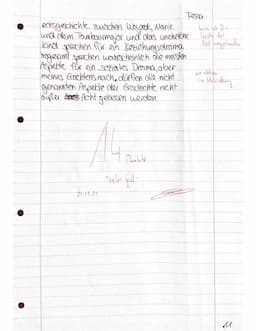 Tessa
echsgeschichte zwischen Woyzeck, Marie
und dem Tambourmajor und das uneheliche
Kind sprechen für ein Beziehungsdrama.
Insgesamt sprechen wahrscheinlich die meisten
Aspekte für ein soziales Drama, aber
meines Erachtens nach, dürfen die nicht
genannten Aspekte der Geschichte nicht
außer Acht gelassen werden.
14 Punkte
"sehr gut"